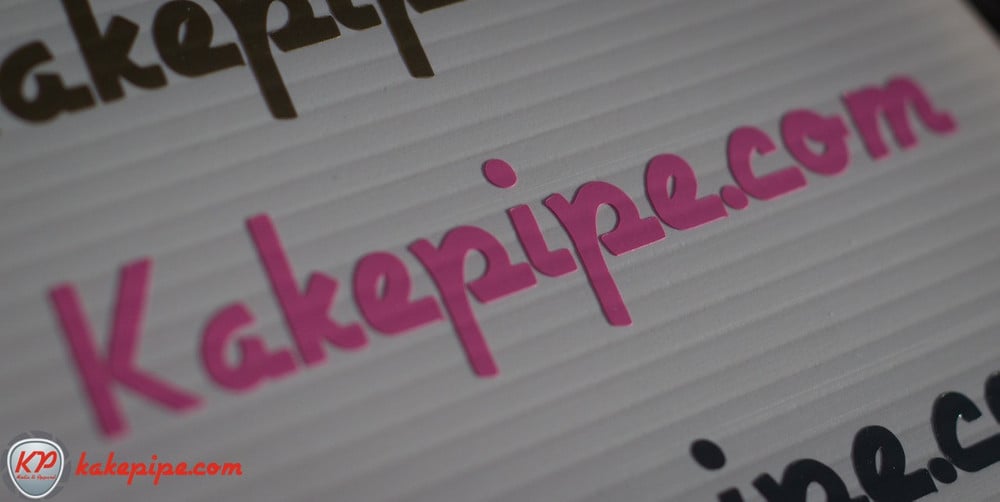 akepip
Kakepipe.com
ipe.co
KP
kakepipe.com